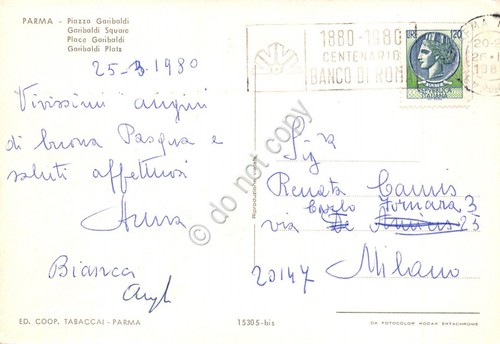 PARMA - Piazza Garibaldi
Garibaldi Square
Place Garibaldi
Garibaldi Platz
25-3-1980
Vivissimi auguri
di buona Pasqua e
saluti affettuosi
Anna
Bianca
1880-1980
CENTENARIO
BANCO DI ROMA
LIRE 120
Sig.ra
Renata
Carlo Fornara 3
via
20147 Milano
do not copy
ED. COOP. TABACCAI - PARMA
15305-bis
DA FOTOCOLOR KODAK EKTACHROME